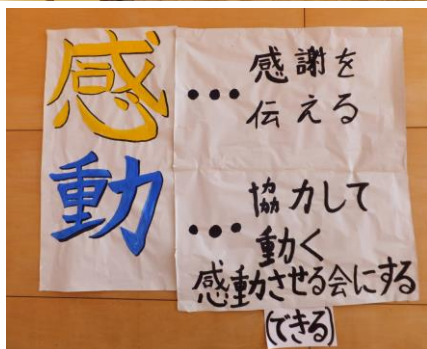 感
…感謝を
伝える
動
…協力して
動く
感動させる会にする
(できる)